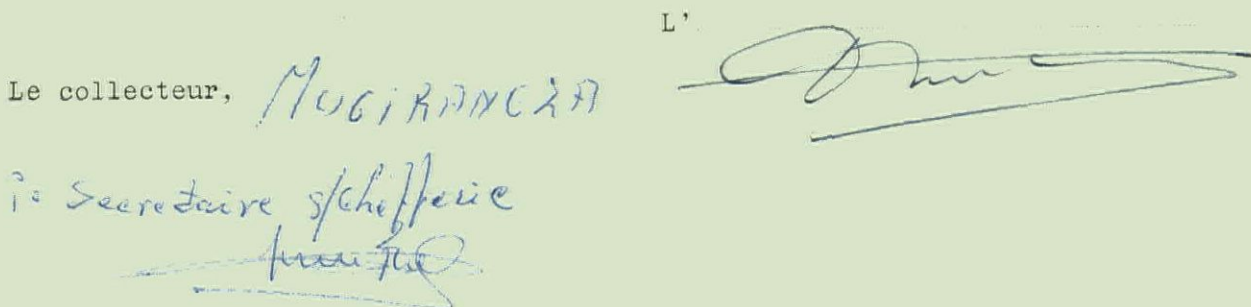 L'
Le collecteur, MUGIRANEZA
Secretaire s/chefferie